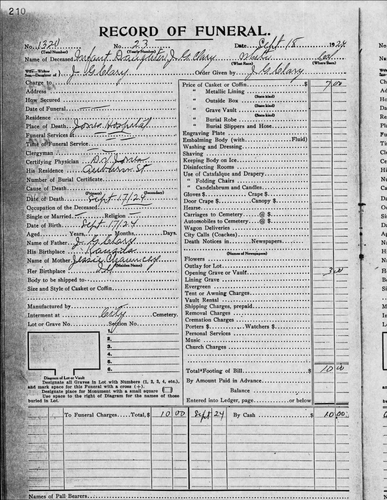 210
RECORD OF FUNERAL.
No. 1324 No. 23 Date Sept 18 1924
(Total Number) (Yearly Number)
Name of Deceased Infant Daughter J. G. Clary White Col
Son-Daughter of J. G. Clary Order Given by J. G. Clary
Charge to
Address
How Secured
Date of Funeral
Residence
Place of Death Jones Hospital
Funeral Services at
Time of Funeral Service
Clergyman
Certifying Physician Dr Jones
His Residence Auburn St
Number of Burial Certificate
Cause of Death
(Primary) (Secondary)
Date of Death Sept 17/24
Occupation of the Deceased
Single or Married Religion
Date of Birth Sept 17/24
Aged Years, Months, Days.
Name of Father J. G. Clary
His Birthplace
Name of Mother Jessie Chauncey
(Maiden Name)
Her Birthplace
Body to be shipped to
Size and Style of Casket or Coffin
Manufactured by
Interment at City Cemetery.
Lot or Grave No. Section No.
1
2
3
4
5
6
Diagram of Lot or Vault
Designate all Graves in Lot with Numbers (1, 2, 3, 4, etc.),
and mark space for this Funeral with a cross (+).
Designate place for Monument with a small square □
Use space to the right of Diagram for the names of those
buried in Lot.
Price of Casket or Coffin $ 7 00
" Metallic Lining
(State kind)
" Outside Box
(State kind)
" Grave Vault
(State kind)
" Burial Robe
(State kind)
" Burial Slippers and Hose
Engraving Plate
Embalming Body (with Fluid)
Washing and Dressing
Shaving
Keeping Body on Ice
Disinfecting Rooms
Use of Catafalque and Drapery
" Folding Chairs
" Candelabrum and Candles
Gloves $ Crape $
Door Crape $ Canopy $
Hearse
Carriages to Cemetery @ $
Automobiles to Cemetery @ $
Wagon Deliveries
City Calls (Coaches)
Death Notices in Newspapers.
(Names of Newspapers)
Flowers
Outlay for Lot
Opening Grave or Vault 3 00
Lining Grave
Evergreen
Tent or Awning Charges
Vault Rental
Shipping Charges, prepaid
Removal Charges
Cremation Charges
Porters $ Watchers $
Personal Services
Music
Church Charges
Total Footing of Bill $ 10 00
By Amount Paid in Advance
Balance $
Entered into Ledger, page or below.
To Funeral Charges, Total, $ 10 00 Sept 24 By Cash $ 10 00
Names of Pall Bearers